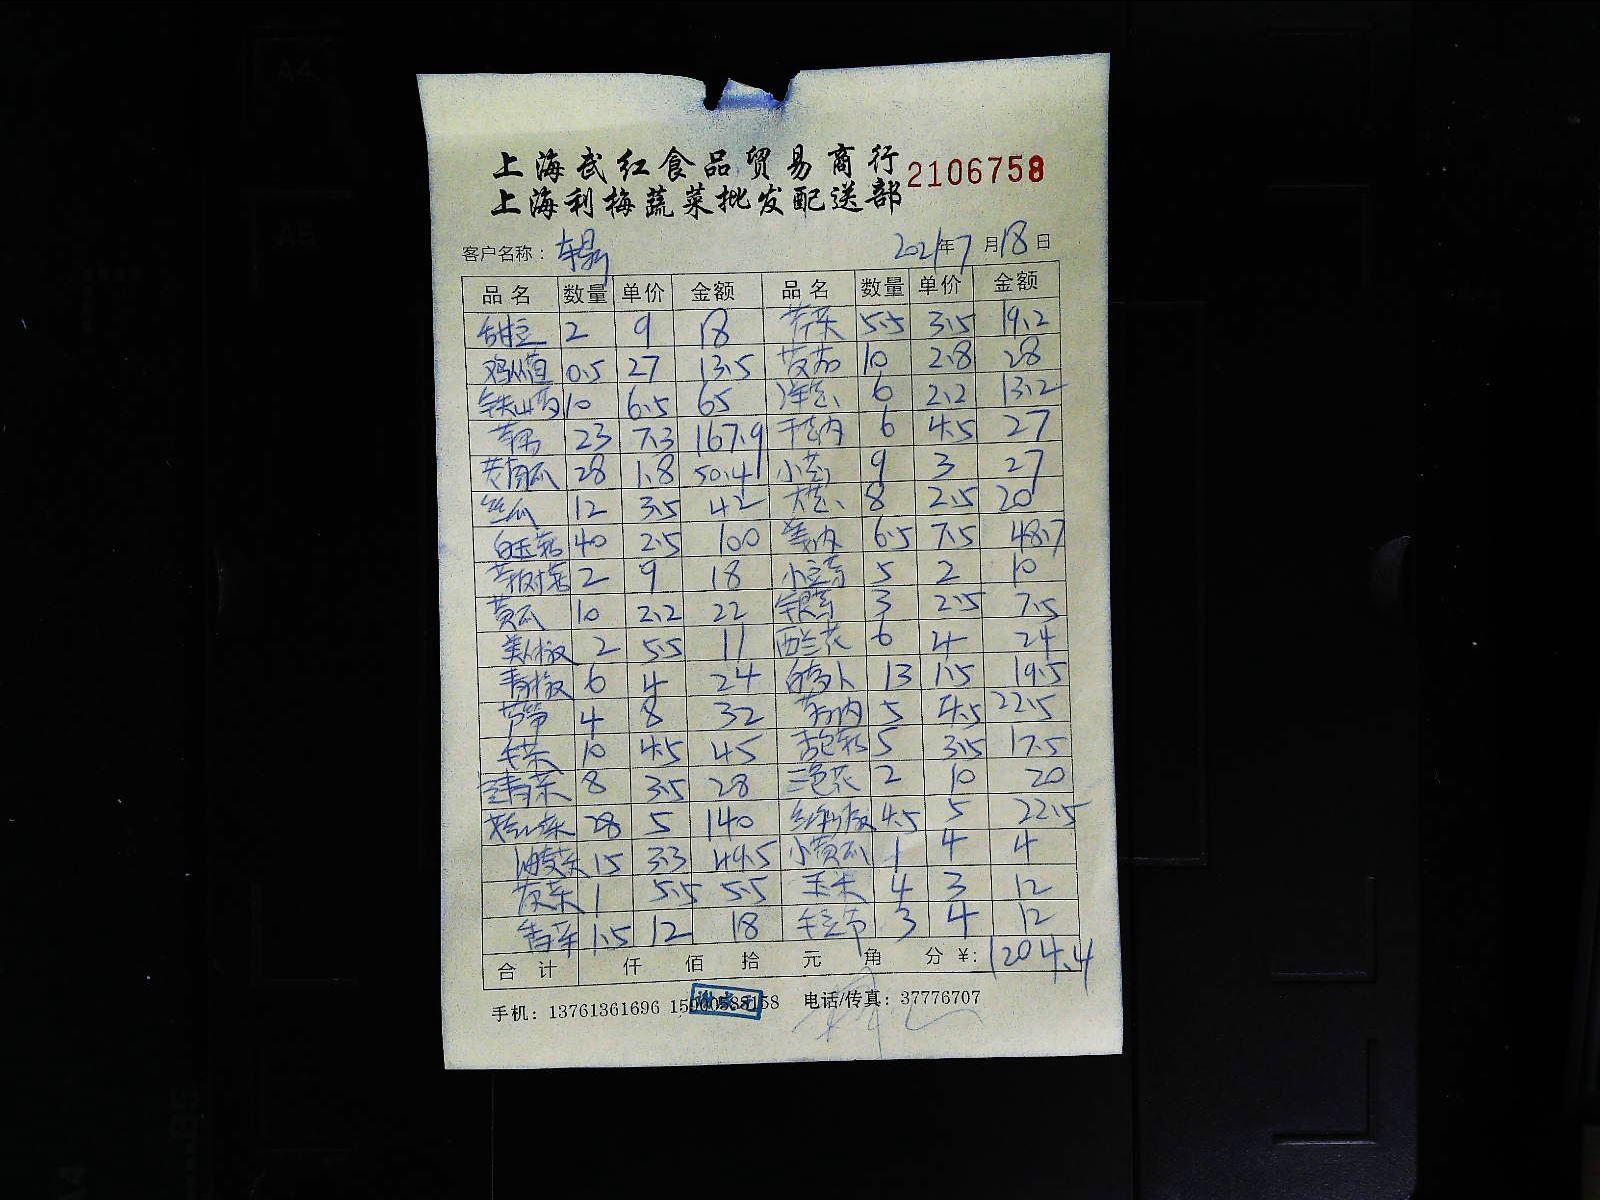 上海武红食品贸易商行 2106758
上海利梅蔬菜批发配送部
客户名称： 2021年7月18日
品名 数量 单价 金额 品名 数量 单价 金额
甜豆 2 9 18 芹菜 5.5 3.5 19.2
鸡从菇 0.5 27 13.5 10 2.8 28
铁山药 10 6.5 65 洋葱 6 2.2 13.2
23 7.3 167.9 6 4.5 27
黄南瓜 28 1.8 50.4 小葱 9 3 27
丝瓜 12 3.5 42 大葱 8 2.5 20
白玉菇 40 2.5 100 姜肉 6.5 7.5 48.7
茶树菇 2 9 18 小豆芽 5 2 10
黄瓜 10 2.2 22 银芽 3 2.5 7.5
美人椒 2 5.5 11 西兰花 6 4 24
青椒 6 4 24 白萝卜 13 1.5 19.5
芦笋 4 8 32 5 4.5 22.5
生菜 10 4.5 45 5 3.5 17.5
青菜 8 3.5 28 三色花 2 10 20
28 5 140 4.5 5 22.5
油麦菜 15 3.3 49.5 小黄瓜 1 4 4
1 5.5 5.5 玉米 4 3 12
香菜 1.5 12 18 3 4 12
合计 仟 佰 拾 元 角 分 ¥: 1204.4
手机：13761361696 15000588158 电话/传真：37776707